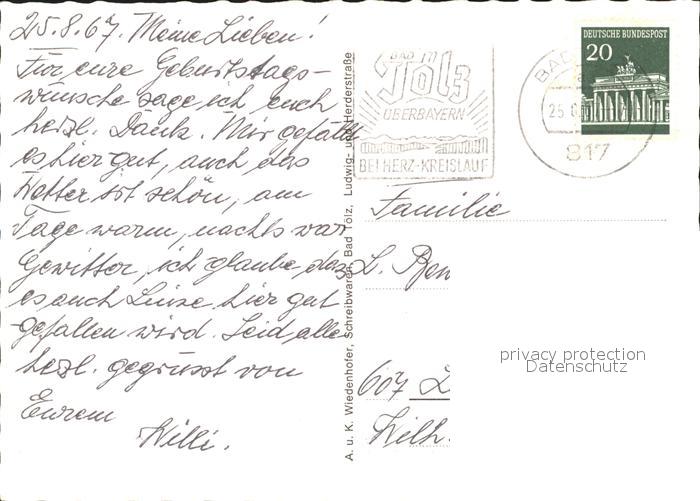 25.8.67. Meine Lieben!
Für eure Geburtstags-
wünsche sage ich euch
herzl. Dank. Mir gefällt
es hier gut, auch das
Wetter ist schön, am
Tage warm, nachts war
Gewitter, ich glaube, das
es auch Luise hier gut
gefallen wird. Seid alle
herzl. gegrüsst von
Eurem
Willi.
A. u. K. Wiedenhofer, Schreibwaren, Bad Tölz, Ludwig- u. Herderstraße
BAD
Tölz
OBERBAYERN
BEI HERZ-KREISLAUF
BAD
25.
817
DEUTSCHE BUNDESPOST
20
Familie
L.
607
Wilh.
privacy protection
Datenschutz